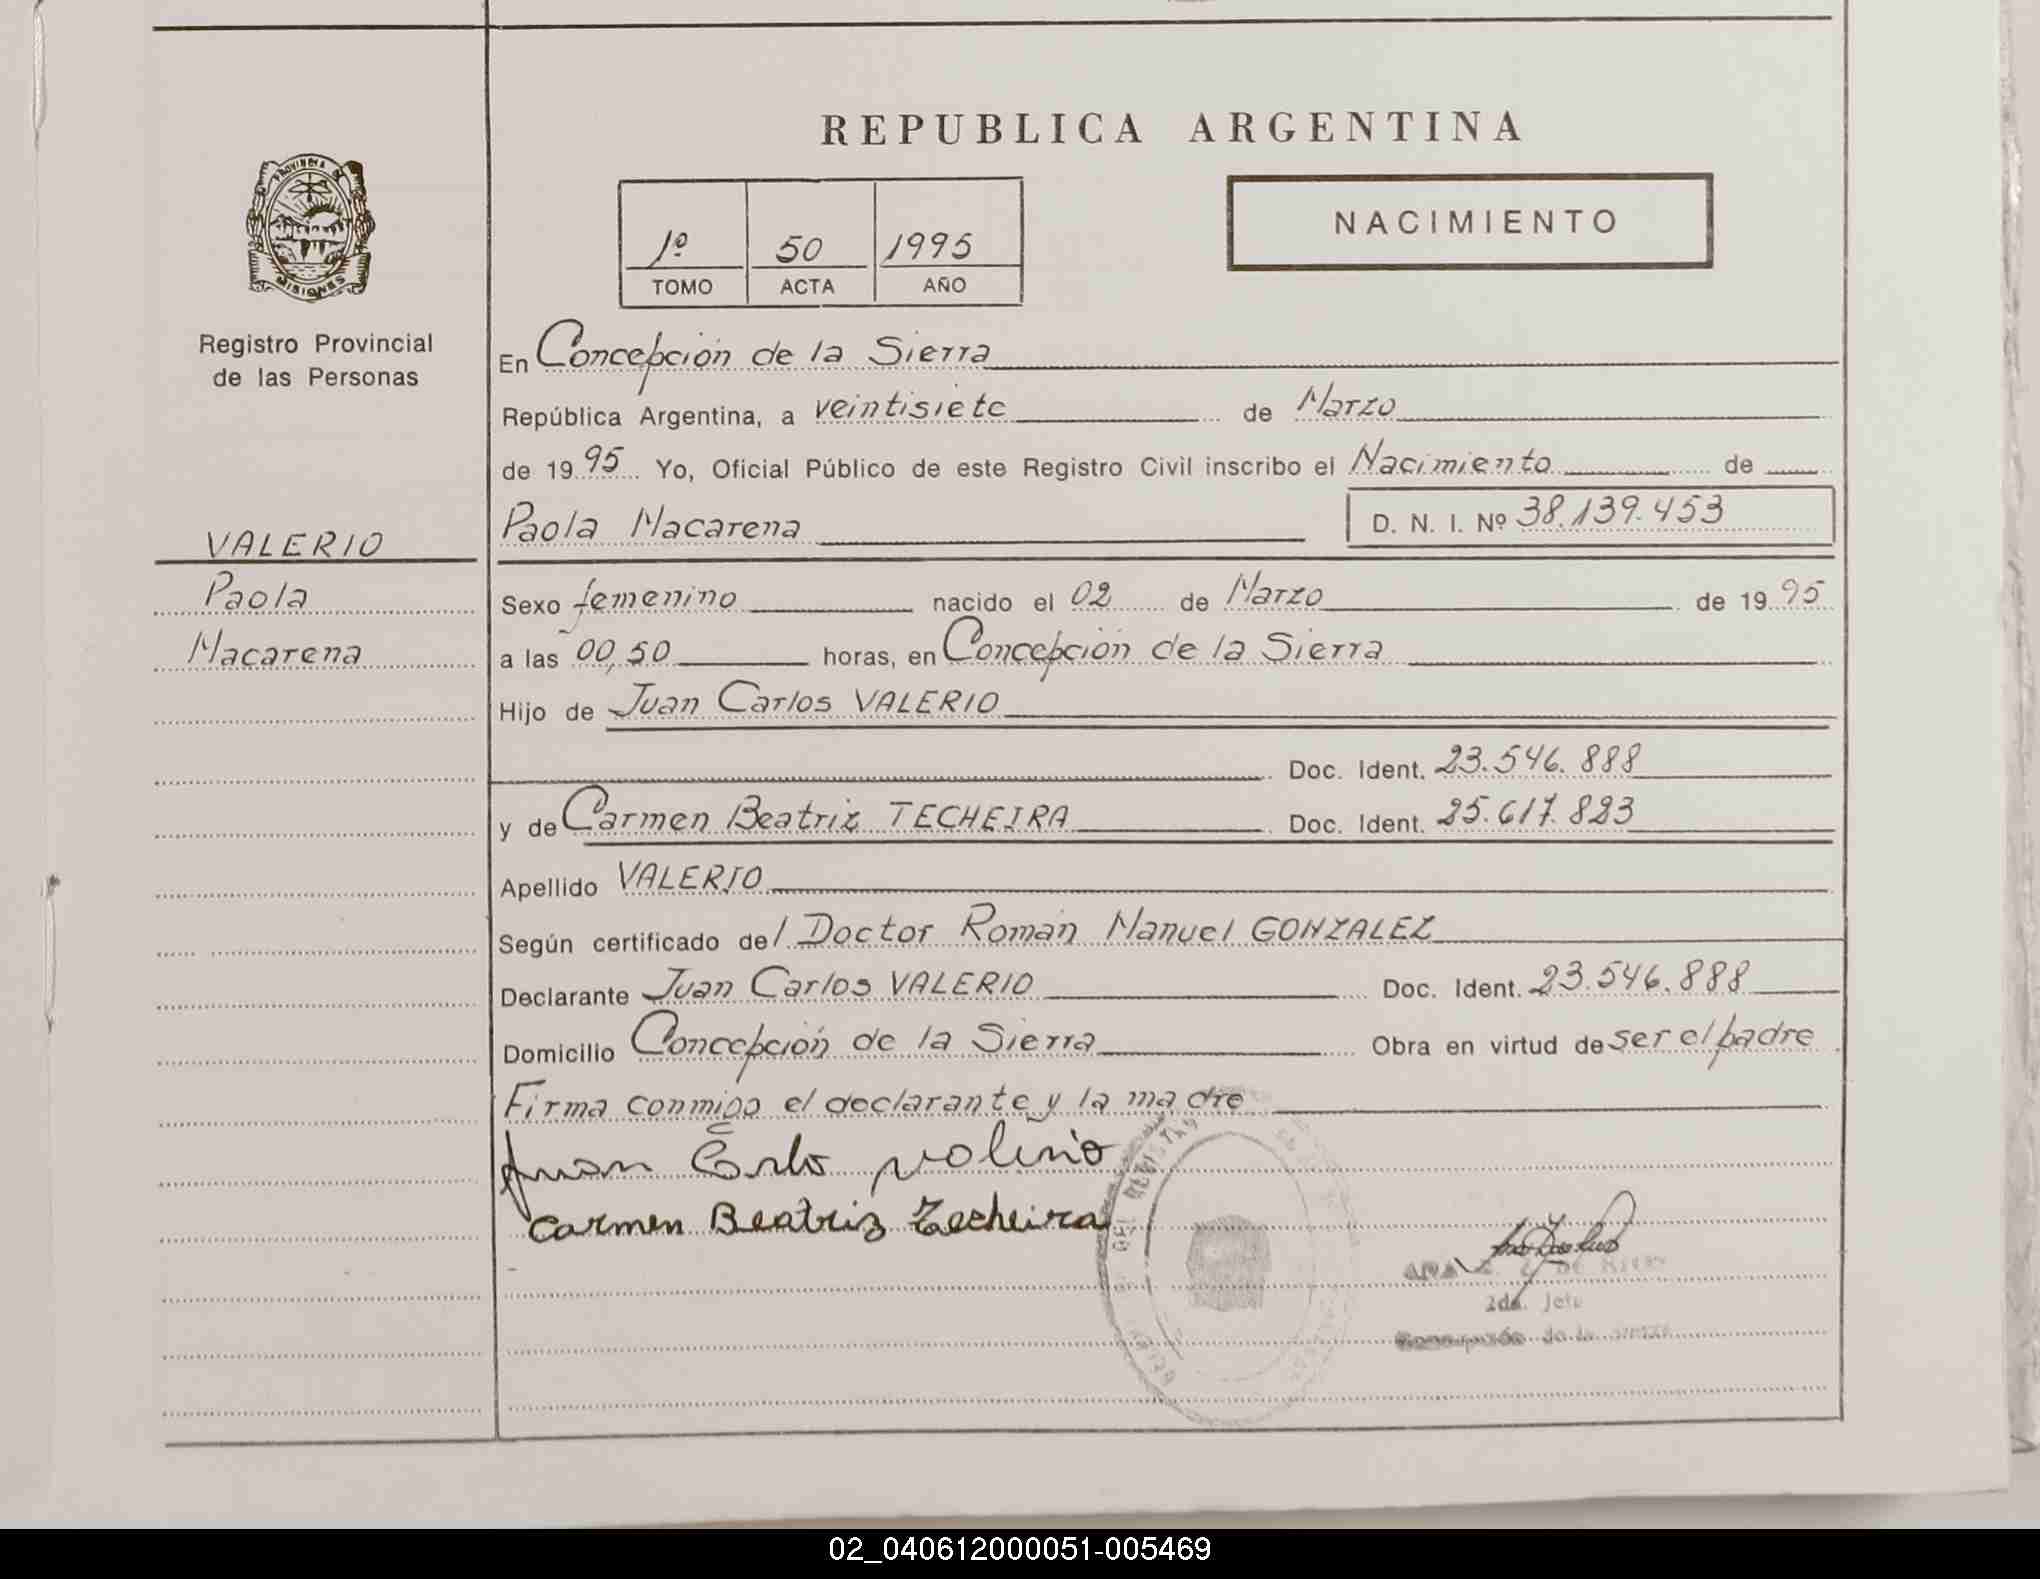 REPUBLICA ARGENTINA
PROVINCIA DE
MISIONES
Registro Provincial
de las Personas
NACIMIENTO
1º 50 1995
TOMO ACTA AÑO
En Concepción de la Sierra
República Argentina, a veintisiete de Marzo
de 1995 Yo, Oficial Público de este Registro Civil inscribo el Nacimiento de
Paola Macarena D. N. I. Nº 38.139.453
VALERIO
Paola
Macarena
Sexo femenino nacido el 02 de Marzo de 1995
a las 00,50 horas, en Concepción de la Sierra
Hijo de Juan Carlos VALERIO
Doc. Ident. 23.546.888
y de Carmen Beatriz TECHEIRA Doc. Ident. 25.617.823
Apellido VALERIO
Según certificado del Doctor Román Manuel GONZALEZ
Declarante Juan Carlos VALERIO Doc. Ident. 23.546.888
Domicilio Concepción de la Sierra Obra en virtud de ser el padre
Firma conmigo el declarante y la madre
Juan Carlo valerio
Carmen Beatriz Techeira
ANA DE
2da. Jefe
de la Sierra
02_040612000051-005469